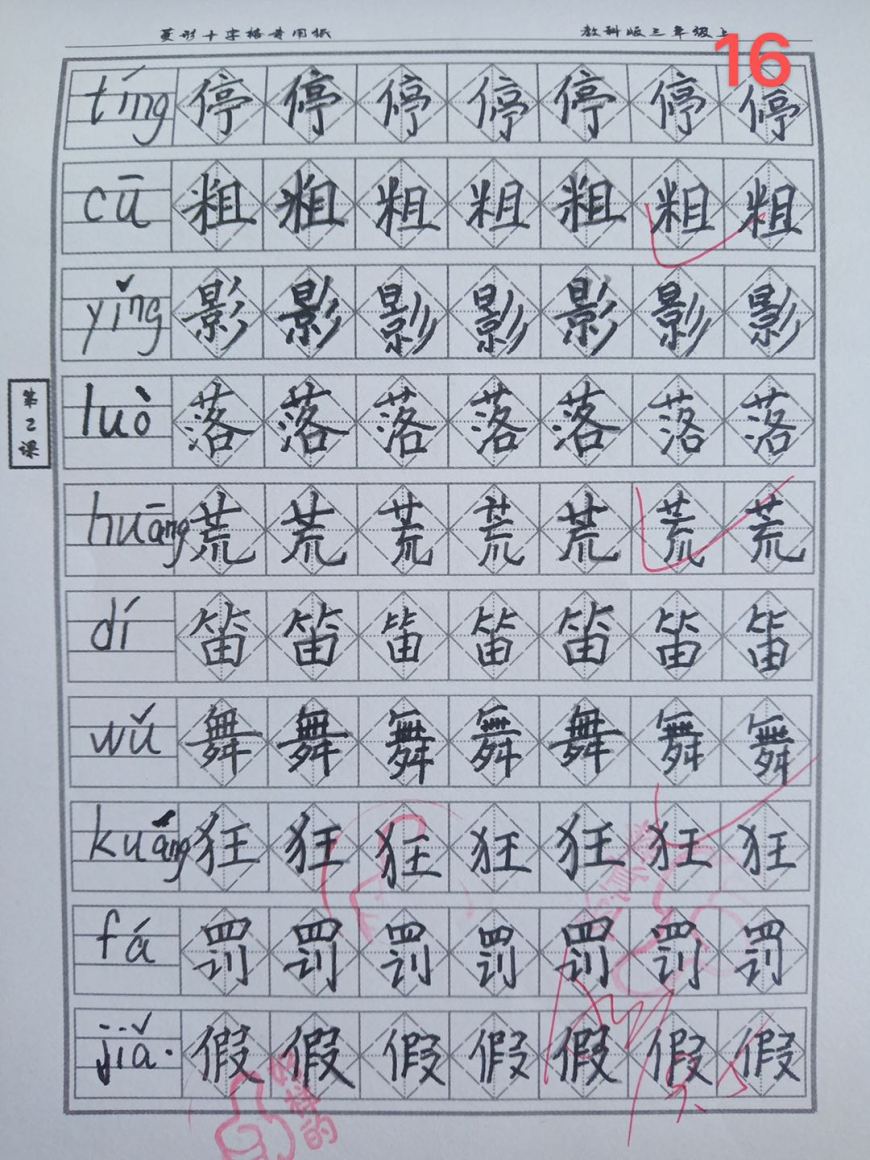 菱形十字格专用纸 教科版三年级上
16
tíng 停 停 停 停 停 停 停
cū 粗 粗 粗 粗 粗 粗 粗
yǐng 影 影 影 影 影 影 影
luò 落 落 落 落 落 落 落
第2课
huāng 荒 荒 荒 荒 荒 荒 荒
dí 笛 笛 笛 笛 笛 笛 笛
wǔ 舞 舞 舞 舞 舞 舞 舞
kuáng 狂 狂 狂 狂 狂 狂 狂
fá 罚 罚 罚 罚 罚 罚 罚
jiǎ 假 假 假 假 假 假 假
好样的